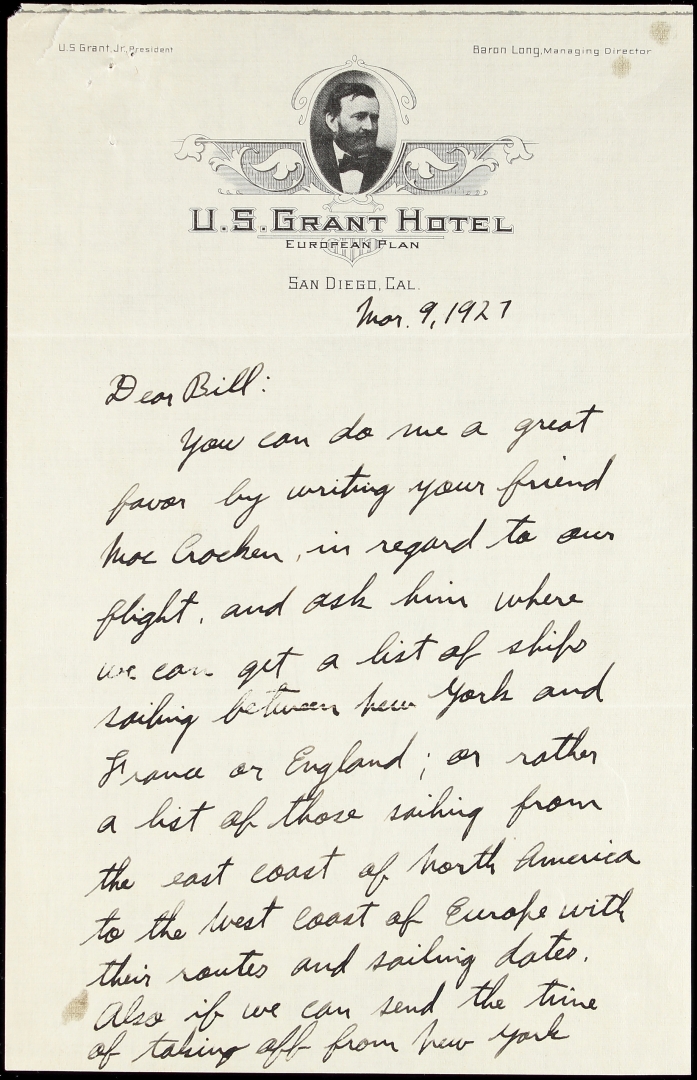 U.S Grant, Jr, President
Baron Long, Managing Director
U.S. GRANT HOTEL
EUROPEAN PLAN
SAN DIEGO, CAL.
Mar. 9, 1927
Dear Bill:
You can do me a great
favor by writing your friend
Mac Cracken, in regard to our
flight, and ask him where
we can get a list of ships
sailing between New York and
France or England; or rather
a list of those sailing from
the east coast of North America
to the West coast of Europe with
their routes and sailing dates.
Also if we can send the time
of taking off from New York